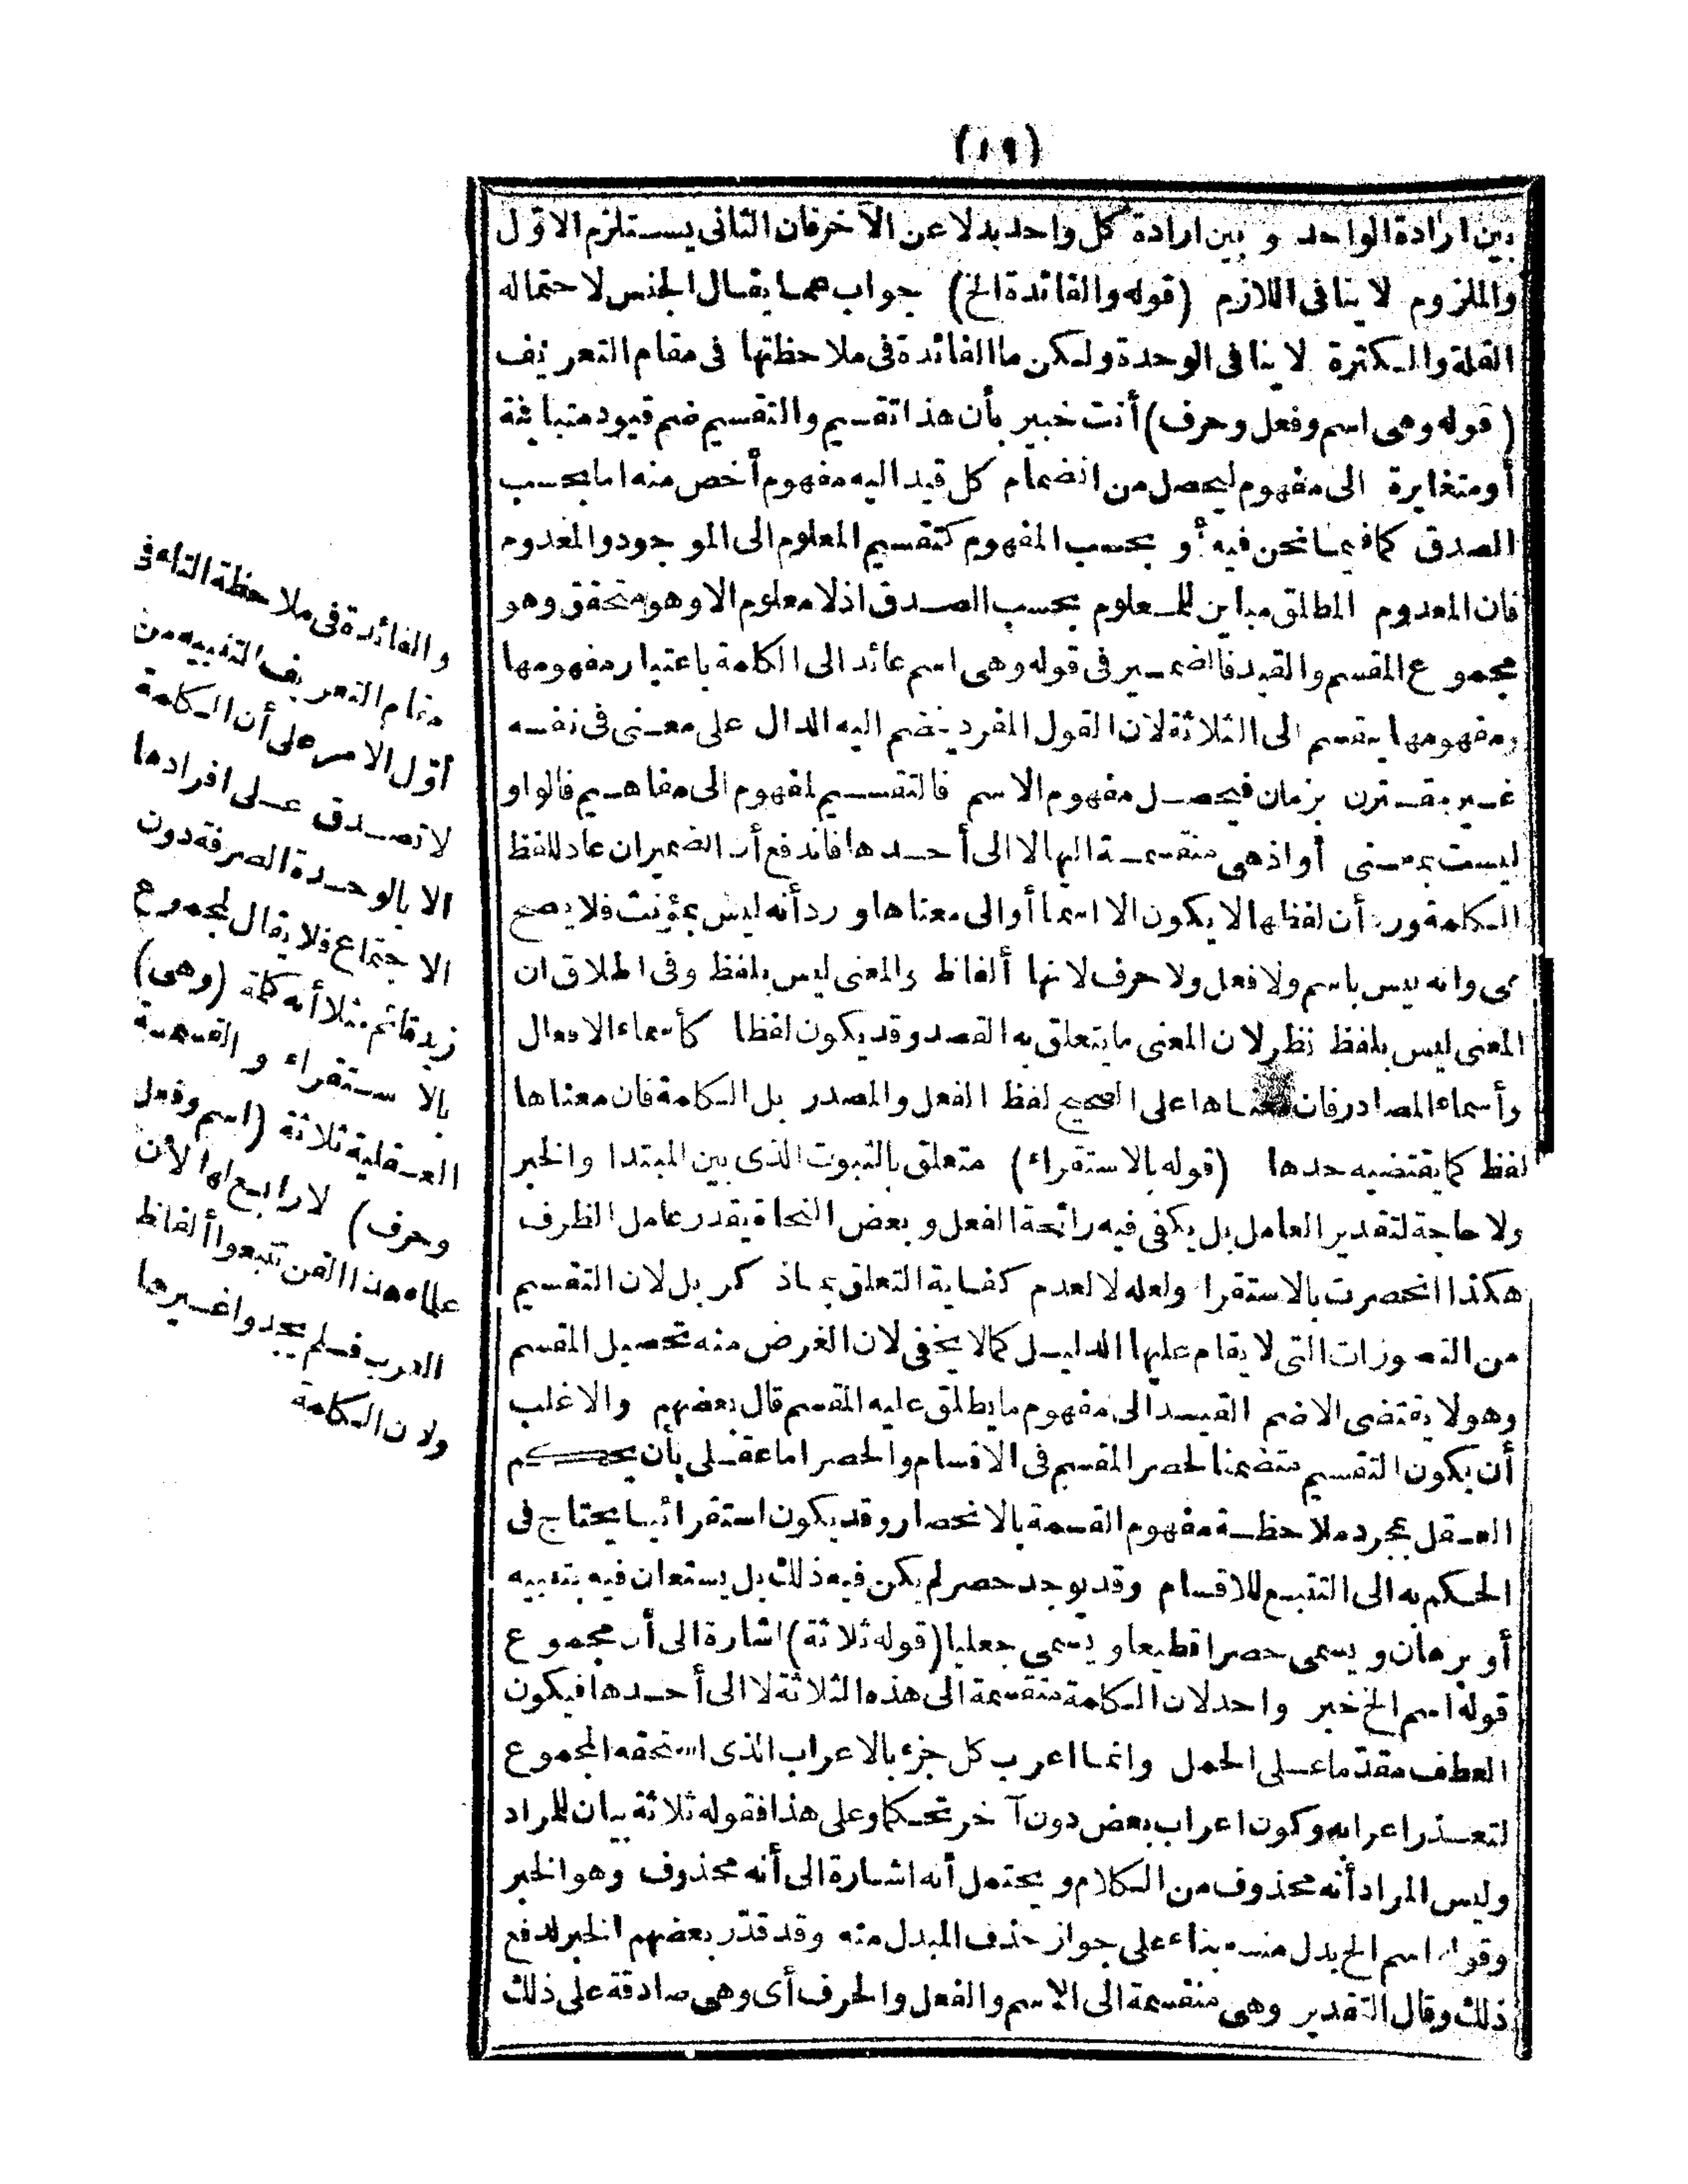 (١٩)
بين ارادة الواحد و بين ارادة كل واحد بدلا عن الآخر فان الثانى يستلزم الاوّل
والملزوم لا ينافى اللازم (قوله والفائدة الخ) جواب عما يقال الجنس لاحتماله
القلة والكثرة لا ينافى الوحدة ولكن ما الفائدة فى ملاحظتها فى مقام التعريف
(قوله وهى اسم وفعل وحرف) أنت خبير بأن هذا تقسيم والتقسيم ضم قيود متباينة
أو متغايرة الى مفهوم ليحصل من انضمام كل قيد اليه مفهوم أخص منه اما بحسب
الصدق كما فيما نحن فيه أو بحسب المفهوم كتقسيم المعلوم الى الموجود والمعدوم
فان المعدوم المطلق مباين للمعلوم بحسب الصدق اذ لا معلوم الا وهو متحقق وهو
مجموع المقسم والقيد فالضمير فى قوله وهى اسم عائد الى الكلمة باعتبار مفهومها
ومفهومها ينقسم الى الثلاثة لان القول المفرد ينضم اليه الدال على معنى فى نفسه
غير مقترن بزمان فيحصل مفهوم الاسم فالتقسيم لمفهوم الى مفاهيم فالواو
ليست بمعنى أو اذ هى منقسمة اليها لا الى أحدها فاندفع أن الضمير ان عاد للفظ
الكلمة ورد أن لفظها لا يكون الا اسما أو الى معناها ورد أنه ليس بمؤنث فلا يصح
هى وانه ليس باسم ولا فعل ولا حرف لانها ألفاظ والمعنى ليس بلفظ وفى اطلاق ان
المعنى ليس بلفظ نظر لان المعنى ما يتعلق به القصد وقد يكون لفظا كأسماء الافعال
وأسماء المصادر فان معناها على الصحيح لفظ الفعل والمصدر بل الكلمة فان معناها
لفظ كما يقتضيه حدها (قوله بالاستقراء) متعلق بالثبوت الذى بين المبتدا والخبر
ولا حاجة لتقدير العامل بل يكفى فيه رائحة الفعل وبعض النحاة يقدر عامل الظرف
هكذا انحصرت بالاستقرا ولعله لا لعدم كفاية التعلق بما ذكر بل لان التقسيم
من التصورات التى لا يقام عليها الدليل كما لا يخفى لان الغرض منه تحصيل المقسم
وهو لا يقتضى الا ضم القيد الى مفهوم ما يطلق عليه المقسم قال بعضهم والاغلب
أن يكون التقسيم متضمنا لحصر المقسم فى الاقسام والحصر اما عقلى بأن يحكم
العقل بمجرد ملاحظة مفهوم القسمة بالانحصار وقد يكون استقرائيا يحتاج فى
الحكم به الى التتبع للاقسام وقد يوجد حصر لم يكن فيه ذلك بل يستعان فيه بتنبيه
أو برهان ويسمى حصرا قطيعا ويسمى جعليا (قوله ثلاثة) اشارة الى أن مجموع
قوله اسم الخ خبر واحد لان الكلمة منقسمة الى هذه الثلاثة لا الى أحدها فيكون
العطف مقدّما على الحمل وانما اعرب كل جزء بالاعراب الذى استحقه المجموع
لتعذر اعرابه وكون اعراب بعض دون آخر تحكما وعلى هذا فقوله ثلاثة بيان للمراد
وليس المراد أنه محذوف من الكلام ويحتمل أنه اشارة الى أنه محذوف وهو الخبر
وقوله اسم الخ بدل منه بناء على جواز حذف المبدل منه وقد قدّر بعضهم الخبر لدفع
ذلك وقال التقدير وهى منقسمة الى الاسم والفعل والحرف أى وهى صادقة على ذلك
والفائدة فى ملاحظة التاء فى
مقام التعريف التنبيه من
أوّل الامر على أن الكلمة
لا تصدق على افرادها
الا بالوحدة الصرفة دون
الاجتماع فلا يقال لمجموع
زيد قائم مثلا أنه كلمة (وهى)
بالاستقراء و القسمة
العقلية ثلاثة (اسم وفعل
وحرف) لا رابع لها لان
علماء هذا الفن تتبعوا ألفاظ
العرب فلم يجدوا غيرها
ولان الكلمة